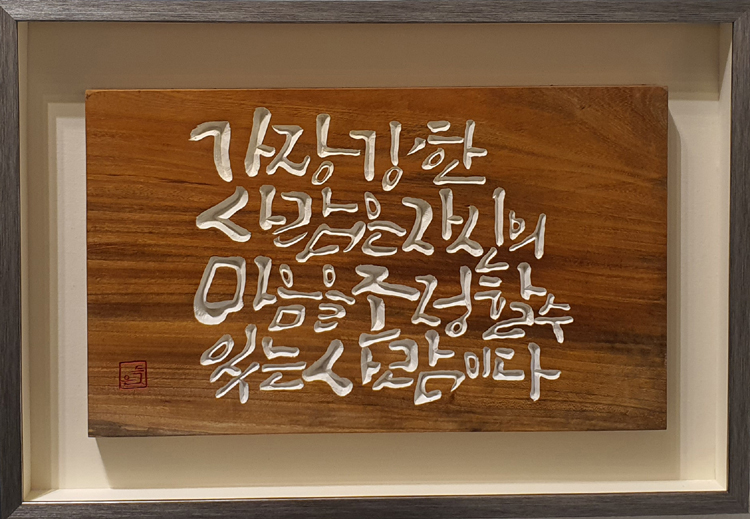 가장 강한
사람은 자신의
마음을 조정할 수
있는 사람이다